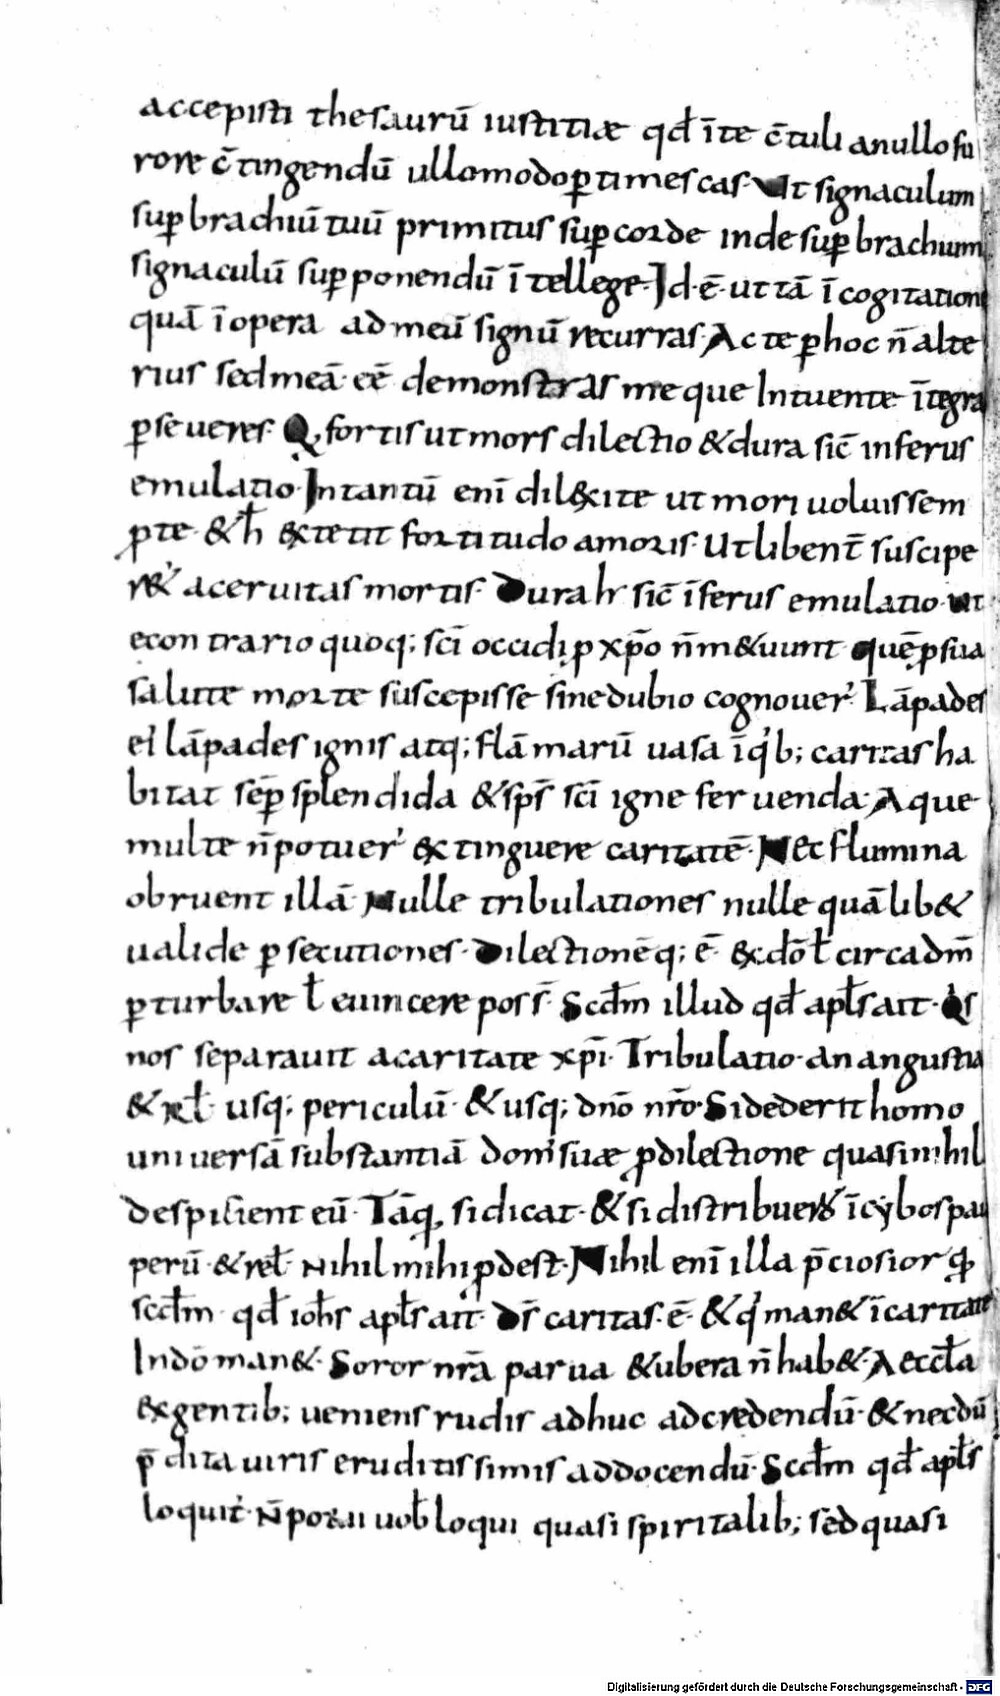 accepisti thesaurū iustitiæ qđ īte c̄tuli anullo fu
rore c̄tingendū ullomodo ꝑtimescas. Ut signaculum
suꝑ brachiū tuū primitus suꝑ corde inde suꝑ brachium
signaculū suꝑponendū ītellege. Id.ē. ut tā ī cogitatione
quā ī opera ad meū signū recurras. Ac te ꝑ hoc n̄ alte
rius sed meā eē demonstras me que Intuente ītegra
ꝑseueres. Q, fortis ut mors dilectio & dura sic̄ inferus
emulatio. Intantū enī dil&xi te ut mori uoluissem
ꝓ te & ħ extetit fortitudo amoris. Ut libent̄ suscipe
r& aceruitas mortis. Dura hr sic̄ īferus emulatio. Ut
econtrario quoq; sc̄i occidi ꝓ xp̄o n̄ m&uunt quē ꝓ sua
salute morte suscepisse sine dubio cognouer'. Lāpades
ei' lāpades ignis atq; flāmarū uasa īq'b; caritas ha
bitat sēꝑ splendida & sp̄s sc̄i igne feruenda. Aque
multe n̄ potuer' extinguere caritatē. Nec flumina
obruent illā. Nulle tribulationes nulle quālib&
ualide ꝑsecutiones. Dilectionēq; ē exdōł circa dm̄
ꝑturbare ł euincere poss̄. Scđm illud qđ apłs ait. Q's
nos separauit a caritate xp̄i. Tribulatio. an angustia
& reł. usq; periculū. & usq; dnō nr̄o. Si dederit homo
uniuersā substantiā dom' suæ ꝓ dilectione quasi nihil
despicient eū. Tāq, si dicat. & si distribuer& ī cybos pau
perū. & reł. Nihil mihi ꝓdest. Nihil enī illa p̄ciosior q,
scđm qđ iohs apłs ait. Ds̄ caritas.ē. & q' man& ī caritate
In dō man&. Soror nr̄a parua & ubera n̄ hab&. A eccła
ex gentib; ueniens rudis adhuc ad credendū. & necdū
p̄dita uiris eruditissimis ad docendū. Scđm qđ apłs
loquit'. N̄ potui uoƀ loqui quasi spiritalib; sed quasi
Digitalisierung gefördert durch die Deutsche Forschungsgemeinschaft - DFG